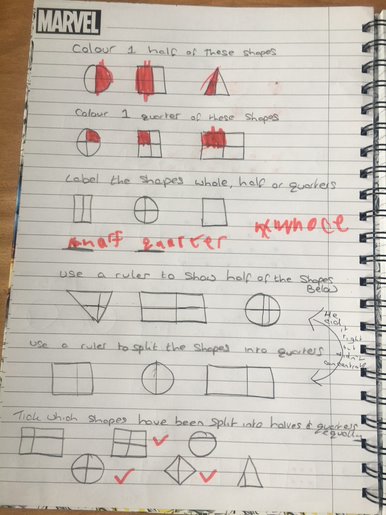 MARVEL
Colour 1 half of these shapes
Colour 1 quarter of these shapes
Label the shapes whole, half or quarters
half quarter whole
use a ruler to show half of the shapes
Below
He did it right but didn't concentrate
use a ruler to split the shapes into quarters
Tick which shapes have been split into halves & quarters
equally